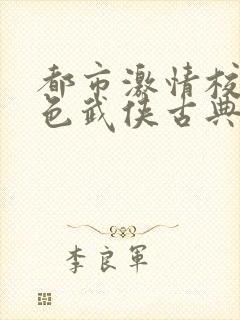 都市激情校
色武侠古典
李良軍